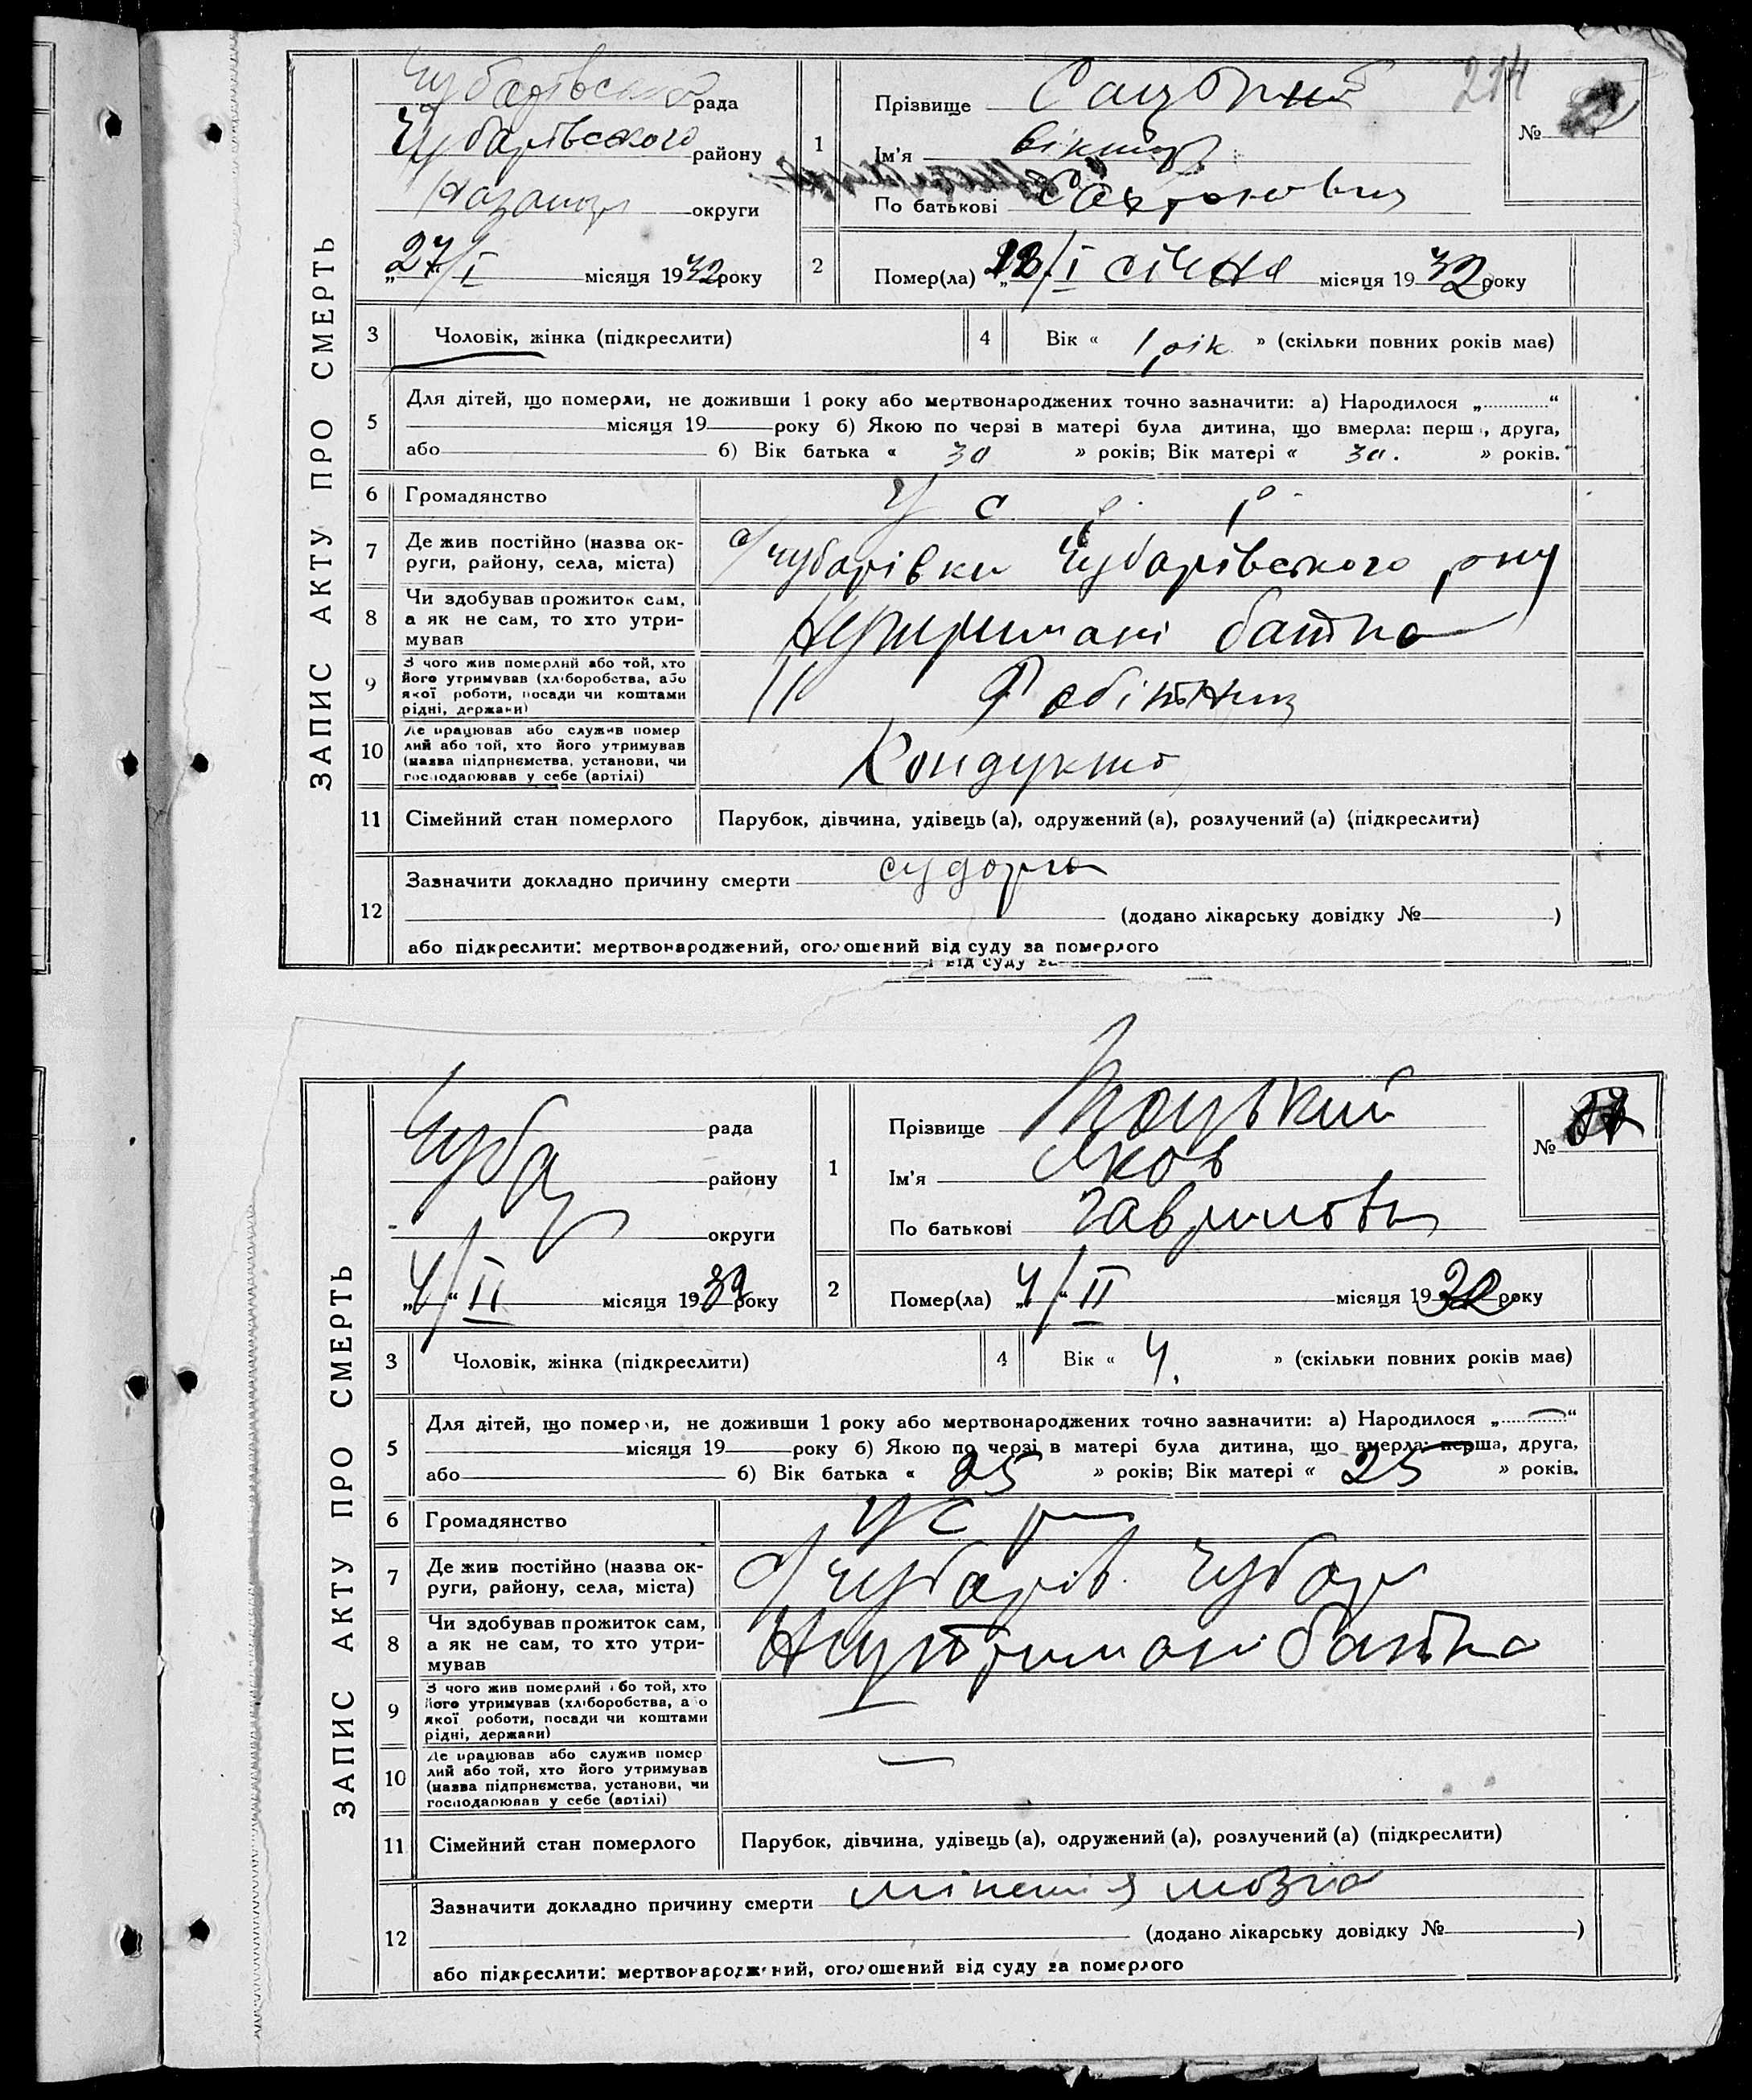 ЗАПИС АКТУ ПРО СМЕРТЬ
214
Чубарівська рада
Чубарівського району
округи
„27/I місяця 1932 року
1
Прізвище
№
Ім'я Віктор
По батькові
2
Помер(ла) /I січня місяця 1932 року
3 Чоловік, жінка (підкреслити)
4 Вік « 1 рік » (скільки повних років має)
5 Для дітей, що померли, не доживши 1 року або мертвонароджених точно зазначити: а) Народилося „ “
місяця 19 року б) Якою по черзі в матері була дитина, що вмерла: перш , друга,
або б) Вік батька « 30 » років; Вік матері « 30. » років.
6 Громадянство У С Р Р
7 Де жив постійно (назва ок-
руги, району, села, міста) с/Чубарівки Чубарівського р-ну
8 Чи здобував прожиток сам,
а як не сам, то хто утри-
мував Наутримані батька
9 З чого жив померлий або той, хто
його утримував (хліборобства, або
якої роботи, посади чи коштами
рідні, держави) Робітниц
10 Де працював або служив помер
лий або той, хто його утримував
(назва підприємства, установи, чи
господарював у себе (артілі) Кондукто
11 Сімейний стан померлого Парубок, дівчина, удівець (а), одружений (а), розлучений (а) (підкреслити)
12 Зазначити докладно причину смерти судорга
(додано лікарську довідку № )
або підкреслити: мертвонароджений, оголошений від суду за померлого
від суду за
ЗАПИС АКТУ ПРО СМЕРТЬ
Чубар
рада
району
округи
„4/“ II місяця 1932 року
1
Прізвище Троцький
№
Ім'я Яков
По батькові Гаврилови
2
Помер(ла) „4/“ II місяця 1932 року
3 Чоловік, жінка (підкреслити)
4 Вік « 4. » (скільки повних років має)
5 Для дітей, що померли, не доживши 1 року або мертвонароджених точно зазначити: а) Народилося „ “
місяця 19 року б) Якою по черзі в матері була дитина, що вмерла: перша, друга,
або б) Вік батька « 25 » років; Вік матері « 25 » років.
6 Громадянство УС рр
7 Де жив постійно (назва ок-
руги, району, села, міста) с/Чубарів. Чубар
8 Чи здобував прожиток сам,
а як не сам, то хто утри-
мував Наутримані батька
9 З чого жив померлий або той, хто
його утримував (хліборобства, або
якої роботи, посади чи коштами
рідні, держави) —
10 Де працював або служив помер
лий або той, хто його утримував
(назва підприємства, установи, чи
господарював у себе (артілі) —
11 Сімейний стан померлого Парубок, дівчина, удівець (а), одружений (а), розлучений (а) (підкреслити)
12 Зазначити докладно причину смерти мозга
(додано лікарську довідку № )
або підкреслити: мертвонароджений, оголошений від суду за померлого